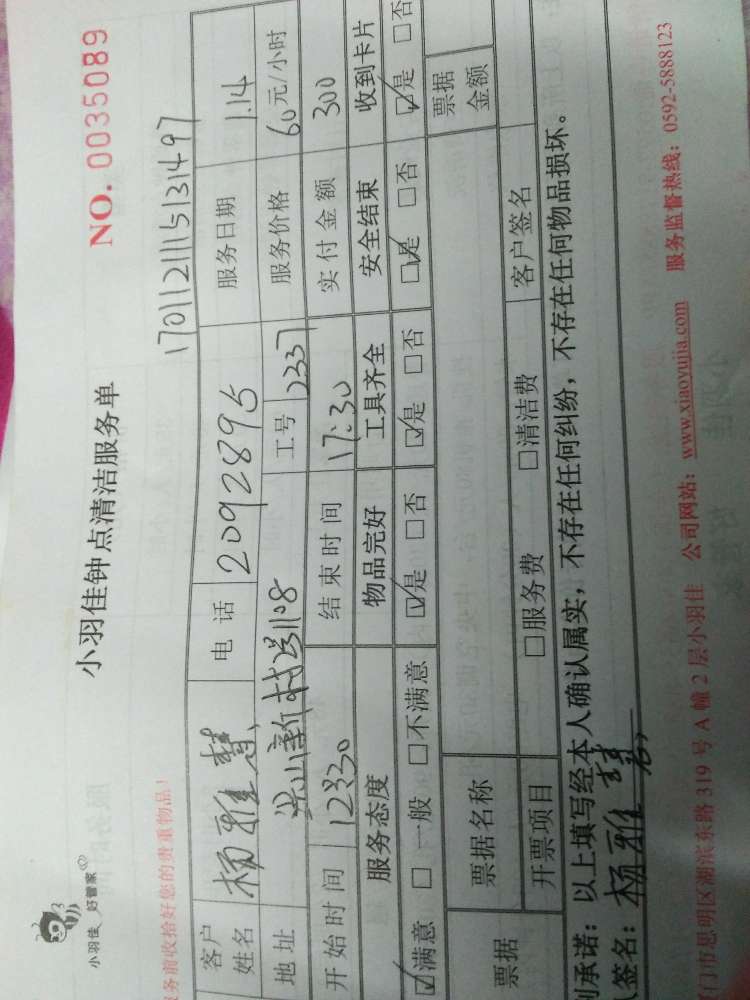 小羽佳 好管家
小羽佳钟点清洁服务单
NO. 0035089
服务前收拾好您的贵重物品！
1701121115131497
客户姓名 杨雅慧 电话 2092895 服务日期 1.14
地址 新村 1108 工号 2337 服务价格 60元/小时
开始时间 12:30 结束时间 17:30 实付金额 300
服务态度 物品完好 工具齐全 安全结束 收到卡片
☑满意 □一般 □不满意 ☑是 □否 ☑是 □否 ☑是 □否 ☑是 □否
票据 票据名称 票据金额
开票项目 □服务费 □清洁费 客户签名
承诺：以上填写经本人确认属实，不存在任何纠纷，不存在任何物品损坏。
签名：杨雅慧
门市思明区湖滨东路 319 号 A 幢 2 层小羽佳 公司网站：www.xiaoyujia.com 服务监督热线：0592-5888123